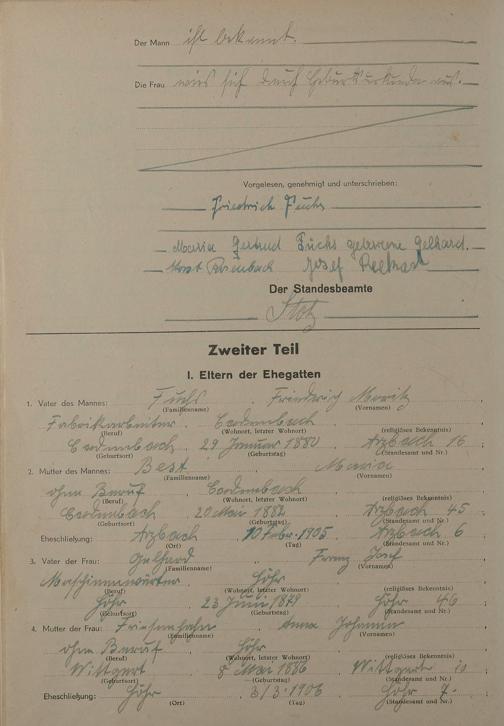 Der Mann ist bekannt.
Die Frau wies sich durch Geburtsurkunde aus.
Vorgelesen, genehmigt und unterschrieben:
Friedrich Fuchs
Maria Gertrud Fuchs geborene Gelhard.
Horst Rosenbach Josef
Der Standesbeamte
Stolz
Zweiter Teil
I. Eltern der Ehegatten
1. Vater des Mannes: Fuchs Friedrich Moritz
(Familienname) (Vornamen)
Fabrikarbeiter Cadenbach
(Beruf) (Wohnort, letzter Wohnort) (religiöses Bekenntnis)
Cadenbach 29 Januar 1880 Arzbach 16
(Geburtsort) (Geburtstag) (Standesamt und Nr.)
2. Mutter des Mannes: Best Maria
(Familienname) (Vornamen)
ohne Beruf Cadenbach
(Beruf) (Wohnort, letzter Wohnort) (religiöses Bekenntnis)
Cadenbach 20 Mai 1882 Arzbach 45
(Geburtsort) (Geburtstag) (Standesamt und Nr.)
Eheschließung: Arzbach 10 Febr. 1905 Arzbach 6
(Ort) (Tag) (Standesamt und Nr.)
3. Vater der Frau: Gelhard Franz Josef
(Familienname) (Vornamen)
Maschinenwärter Höhr
(Beruf) (Wohnort, letzter Wohnort) (religiöses Bekenntnis)
Höhr 23 Juni 1879 Höhr 46
(Geburtsort) (Geburtstag) (Standesamt und Nr.)
4. Mutter der Frau: Anna Johanna
(Familienname) (Vornamen)
ohne Beruf Höhr
(Beruf) (Wohnort, letzter Wohnort) (religiöses Bekenntnis)
Wittgert 8 Mai 1886 Wittgert 10
(Geburtsort) (Geburtstag) (Standesamt und Nr.)
Eheschließung: Höhr 3/3 1906 Höhr 7
(Ort) (Tag) (Standesamt und Nr.)